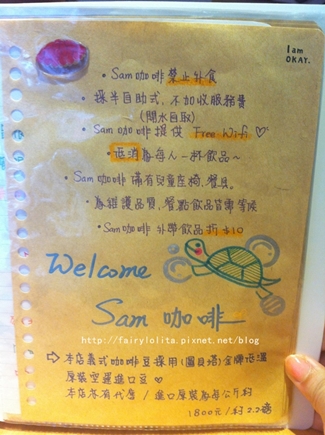 I am
OKAY.
• Sam 咖啡 禁止外食
• 採半自助式，不加收服務費
(開水自取)
• Sam 咖啡 提供 Free Wifi ♡
• 低消為每人一杯飲品~
• Sam 咖啡 備有兒童座椅、餐具。
• 為維護品質，餐點飲品皆需等候
• Sam 咖啡 外帶飲品折$10
Welcome
Sam 咖啡
http://fairylolita.pixnet.net/blog
⇨ 本店義式咖啡豆採用(圖貝塔)金牌低溫
原裝空運進口豆 ♡
本店亦有代售/進口原裝為每公斤約
1800元/約2.2磅